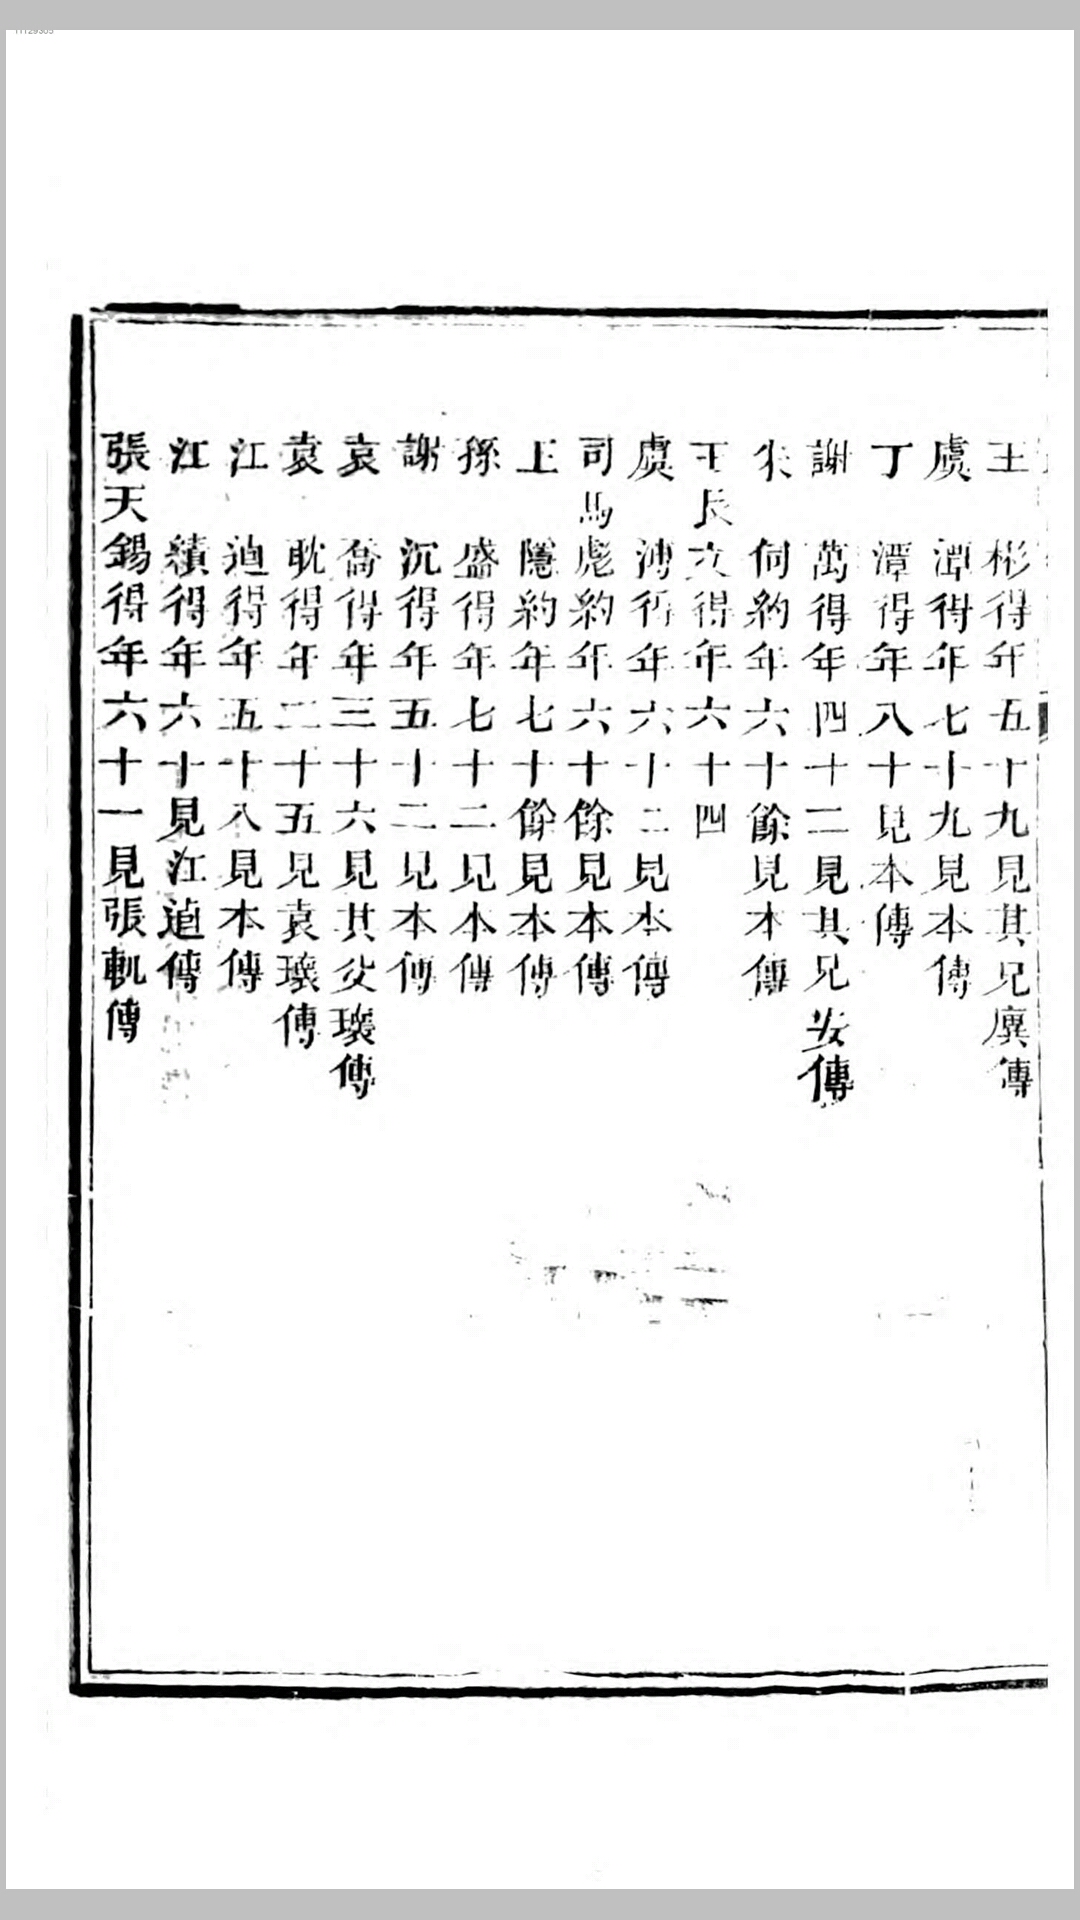 王　彬得年五十九見其兄廙傳
虞　潭得年七十九見本傳
丁　潭得年八十見本傳
謝　萬得年四十二見其兄安傳
朱　伺約年六十餘見本傳
王長文得年六十四
虞　溥得年六十二見本傳
司馬彪約年六十餘見本傳
王　隱約年七十餘見本傳
孫　盛得年七十二見本傳
謝　沉得年五十二見本傳
袁　喬得年三十六見其父瓌傳
袁　耽得年二十五見袁瓌傳
江　逌得年五十八見本傳
江　績得年六十見江逌傳
張天錫得年六十一見張軌傳